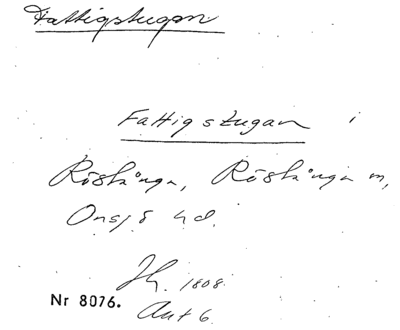 Fattigstugan
Fattigstugan i
Röstånga, Röstånga sn,
Onsjö hd.
Jh. 1808.
Nr 8076.
Ant 6.